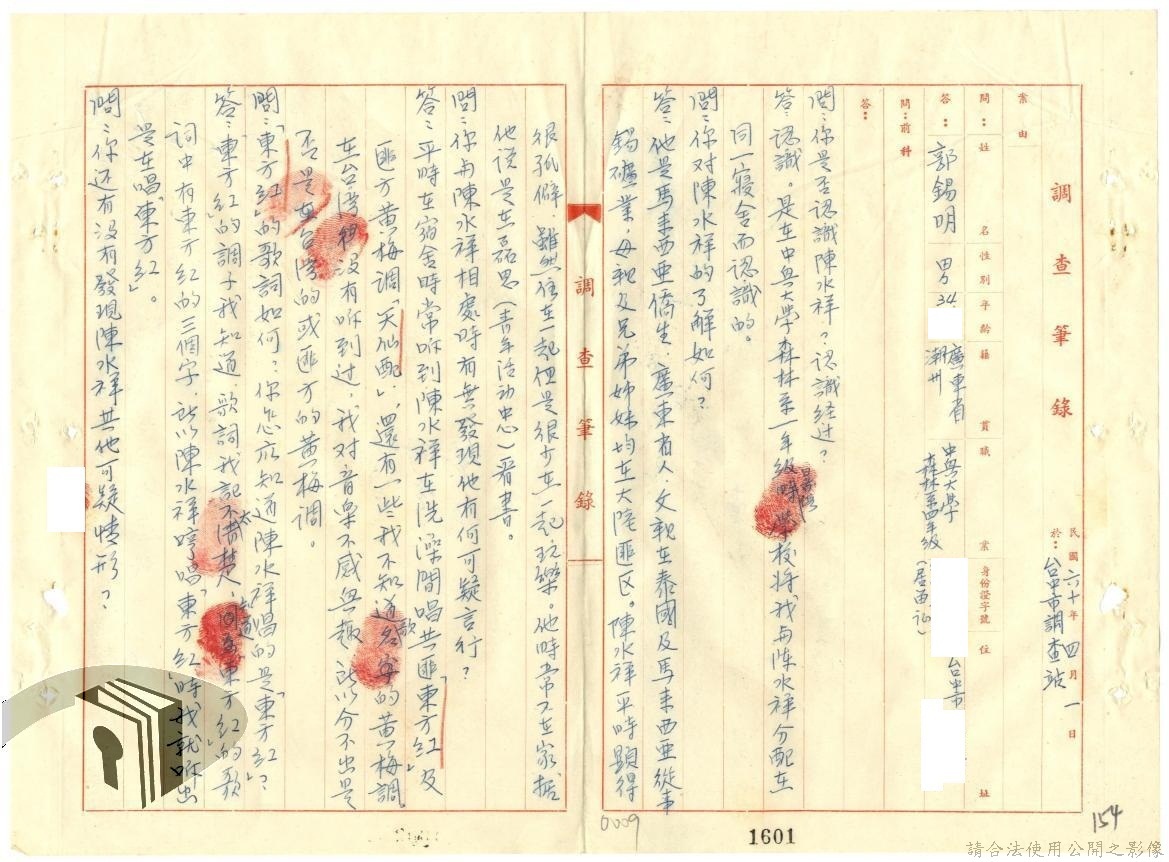 調查筆錄
民國六十年四月一日
於：台中市調查站
案由
問：姓名性別年齡籍貫職業身份證字號住址
答：郭錫明 男 34 廣東省潮州 中興大學森林系四年級（居留証） 台中市
問：前科
答：
問：你是否認識陳水祥？認識経过？
答：認識。是在中興大學森林系一年級時學校將我与陈水祥分配在
同一寢舍而認識的。
問：你对陳水祥的了解如何？
答：他是馬来西亜僑生，廣東省人，父親在泰國及馬来西亜從事
錫礦業，母親及兄弟姊妹均在大陸匪区。陳水祥平時顕得
很孤僻，雖然住在一起但是很少在一起玩樂。他時常不在家据
他说是在磊思（青年活动中心）看書。
問：你与陳水祥相處時有無發現他有何可疑言行？
答：平時在宿舍時常听到陳水祥在洗澡間唱共匪「東方紅」及
匪方黄梅調「天仙配」，還有一些我不知道歌名字的黄梅調。
在台灣裡没有听到过，我对音樂不感興趣所以分不出是
否是在台灣的或匪方的黄梅調。
問：「東方紅」的歌詞如何？你怎应知道陳水祥唱的是「東方紅」？
答：「東方紅」的調子我知道，歌詞我記不太清楚，因為知道東方紅的歌
詞中有東方紅的三個字，所以陳水祥哼唱「東方紅」時我就听出
是在唱「東方紅」。
問：你还有没有發現陳水祥其他可疑情形？
調查筆錄
0009
1601
154
請合法使用公開之影像